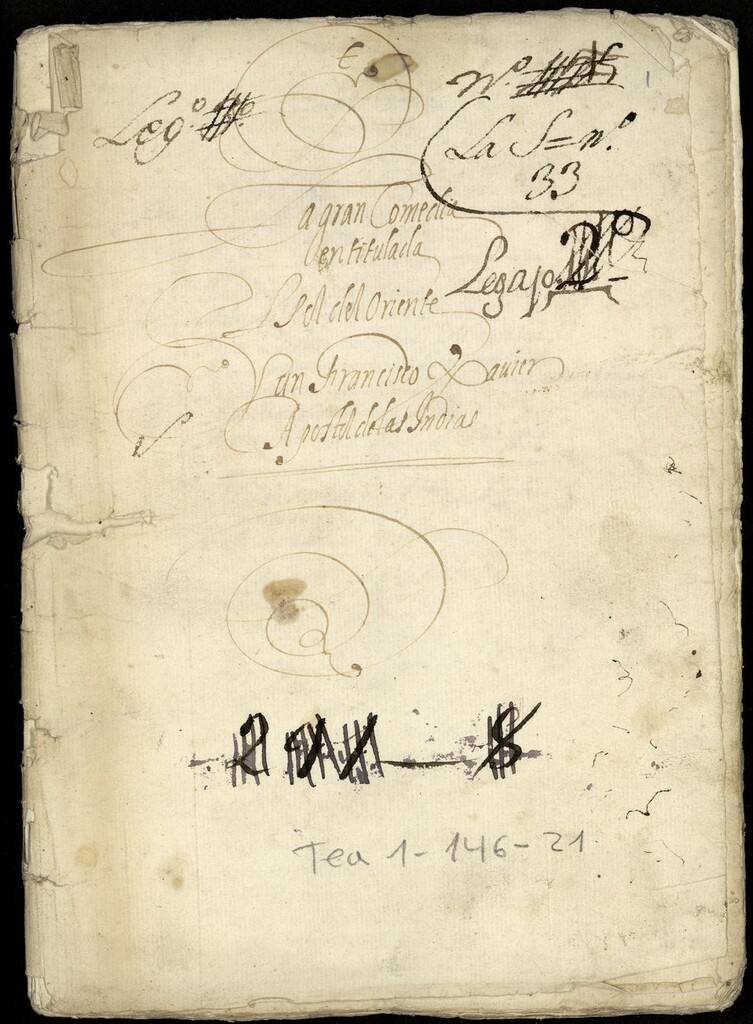 Legº
Nº
La S=nº
33
La gran Comedia
entitulada
Legajo
El Sol del Oriente
San Francisco Xavier
Apostol de las Indias
Tea 1-146-21